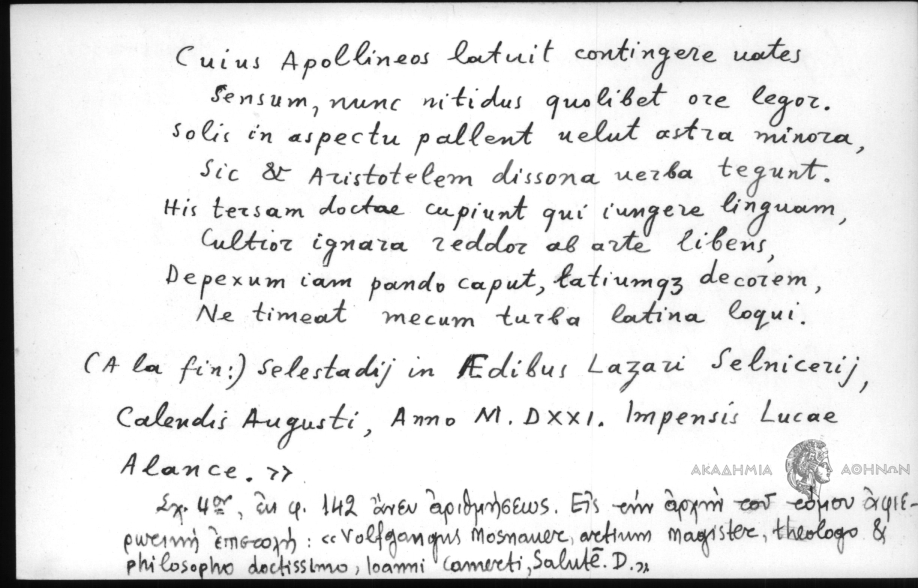 Cuius Apollineos latuit contingere uates
Sensum, nunc nitidus quolibet ore legor.
Solis in aspectu pallent uelut astra minora,
Sic & Aristotelem dissona uerba tegunt.
His tersam doctae cupiunt qui iungere linguam,
Cultior ignara reddor ab arte libens,
Depexum iam pando caput, latiumqꝫ decorem,
Ne timeat mecum turba latina loqui.
(A la fin:) Selestadij in Ædibus Lazari Selnicerij,
Calendis Augusti, Anno M. DXXI. Impensis Lucae
Alance. »
ΑΚΑΔΗΜΙΑ ΑΘΗΝΩΝ
Σχ. 4ον, ἐκ φ. 142 ἄνευ ἀριθμήσεως. Εἰς τὴν ἀρχὴν τοῦ τόμου ἀφιε-
ρωτικὴ ἐπιστολὴ : «Volfgangus Mosnauer, artium magister, theologo &
philosopho doctissimo, Ioanni Camerti, Salutē. D.»